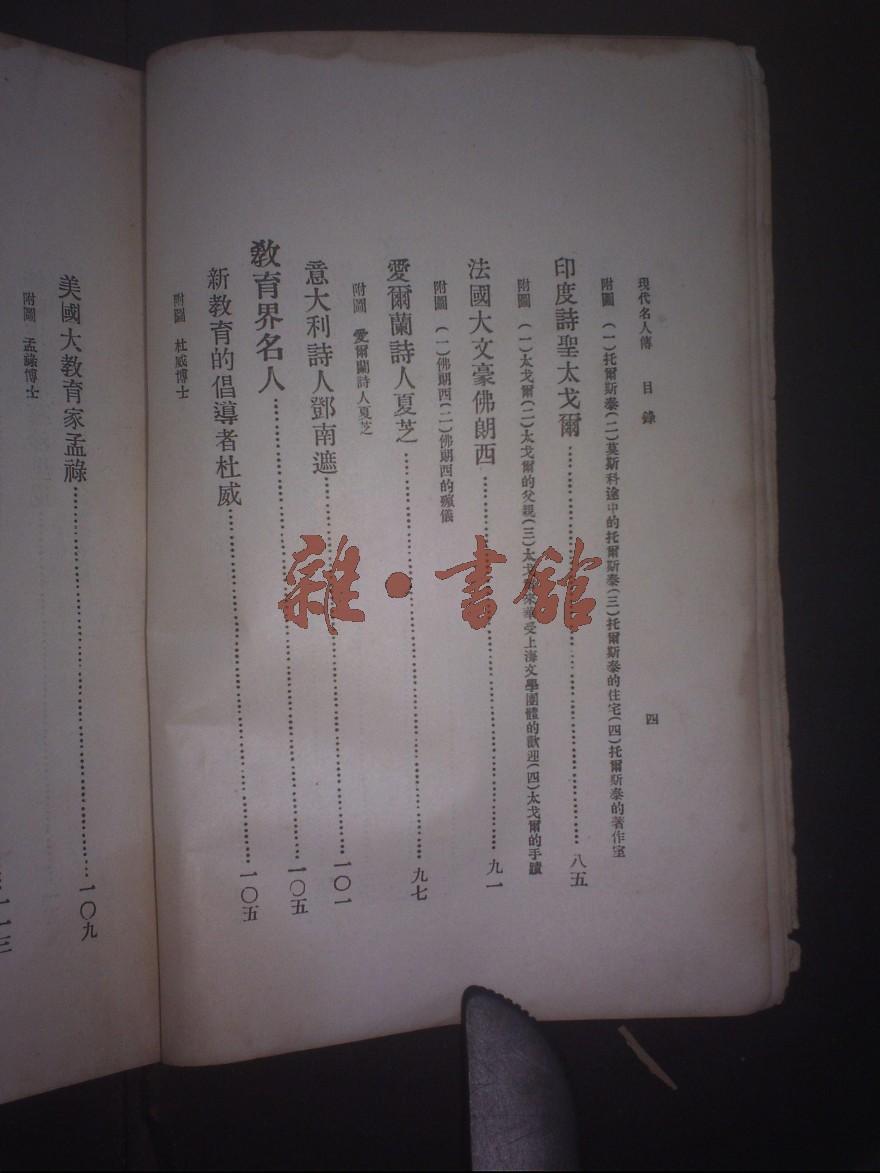 現代名人傳 目錄 四
附圖 (一)托爾斯泰(二)莫斯科途中的托爾斯泰(三)托爾斯泰的住宅(四)托爾斯泰的著作室
印度詩聖太戈爾……八五
附圖 (一)太戈爾(二)太戈爾的父親(三)太戈爾來華受上海文學團體的歡迎(四)太戈爾的手蹟
法國大文豪佛朗西……九一
附圖 (一)佛朗西(二)佛朗西的殯儀
愛爾蘭詩人夏芝……九七
附圖 愛爾蘭詩人夏芝
意大利詩人鄧南遮……一〇一
教育界名人……一〇五
新教育的倡導者杜威……一〇五
附圖 杜威博士
美國大教育家孟祿……一〇九
附圖 孟祿博士
一一三
雜·書館